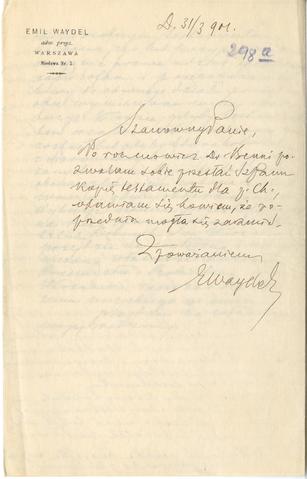 EMIL WAYDEL
adw. przys.
WARSZAWA
Miodowa Nr. 3.
D. 31/3 901.
298a
Szanowny Panie,
Po rozmowie z Dr Benni po-
zwalam sobie przesłać Sz Panu
kopię testamentu dla p. Ch.
obawiam się bowiem, że po-
przednia mogła się zarzucić.
Z poważaniem
EWaydel